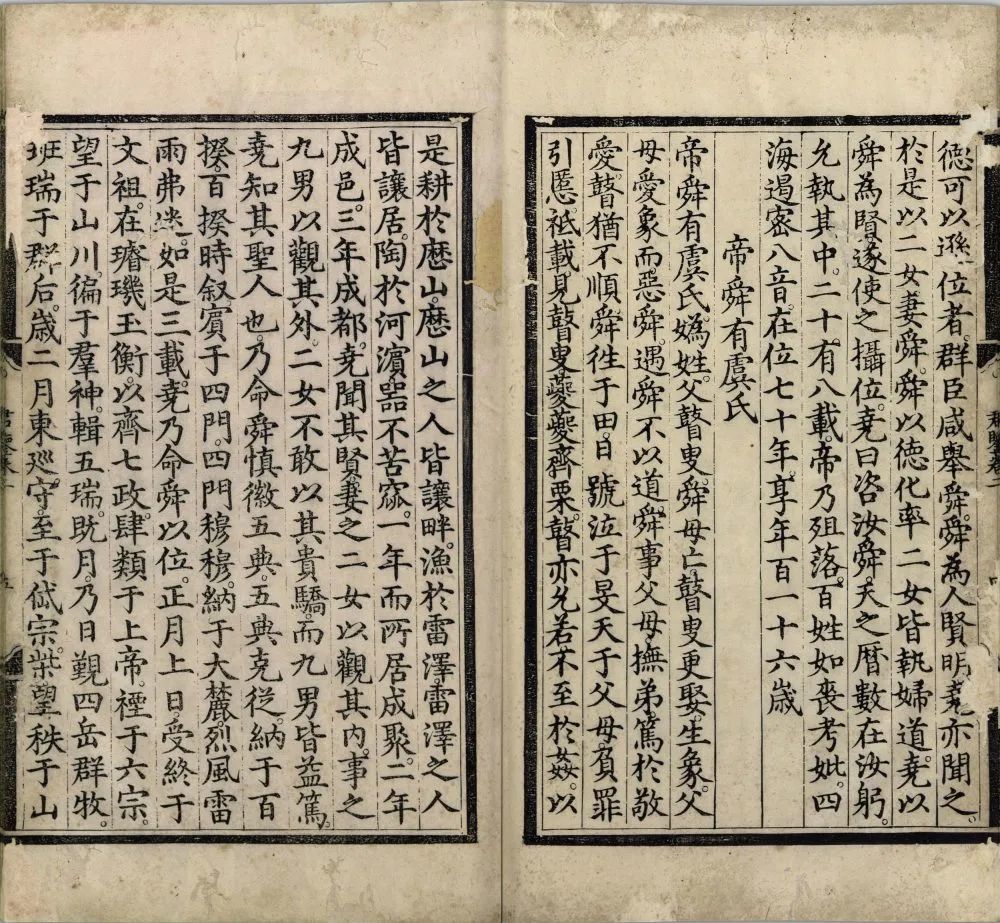 德可以遜位者。群臣咸舉舜。舜為人賢明。堯亦聞之。
於是以二女妻舜。舜以德化率二女皆執婦道。堯以
舜為賢。遂使之攝位。堯曰咨汝舜。天之曆數在汝躬。
允執其中。二十有八載。帝乃殂落。百姓如喪考妣。四
海遏密八音。在位七十年。享年百一十六歲
帝舜有虞氏
帝舜有虞氏。媯為姓。父瞽叟。舜母亡。瞽叟更娶。生象。父
母愛象而惡舜。遇舜不以道。舜事父母。撫弟篤於敬
愛。瞽猶不順。舜徃于田。日號泣于旻天于父母。負罪
引慝。祗載見瞽叟。夔夔齋栗。瞽亦允若。不至於姦。以
是耕於歷山。歷山之人皆讓畔。漁於雷澤。雷澤之人
皆讓居。陶於河濵。器不苦窳。一年而所居成聚。二年
成邑。三年成都。堯聞其賢。妻之二女以觀其內。事之
九男以觀其外。二女不敢以其貴驕。而九男皆益篤。
堯知其聖人也。乃命舜慎徽五典。五典克從。納于百
揆。百揆時叙。賓于四門。四門穆穆。納于大麓。烈風雷
雨弗迷。如是三載。堯乃命舜以位。正月上日。受終于
文祖。在璿璣玉衡。以齊七政。肆類于上帝。禋于六宗。
望于山川。徧于羣神。輯五瑞。旣月。乃日覲四岳群牧。
班瑞于群后。歲二月東廵守。至于岱宗。柴望秩于山